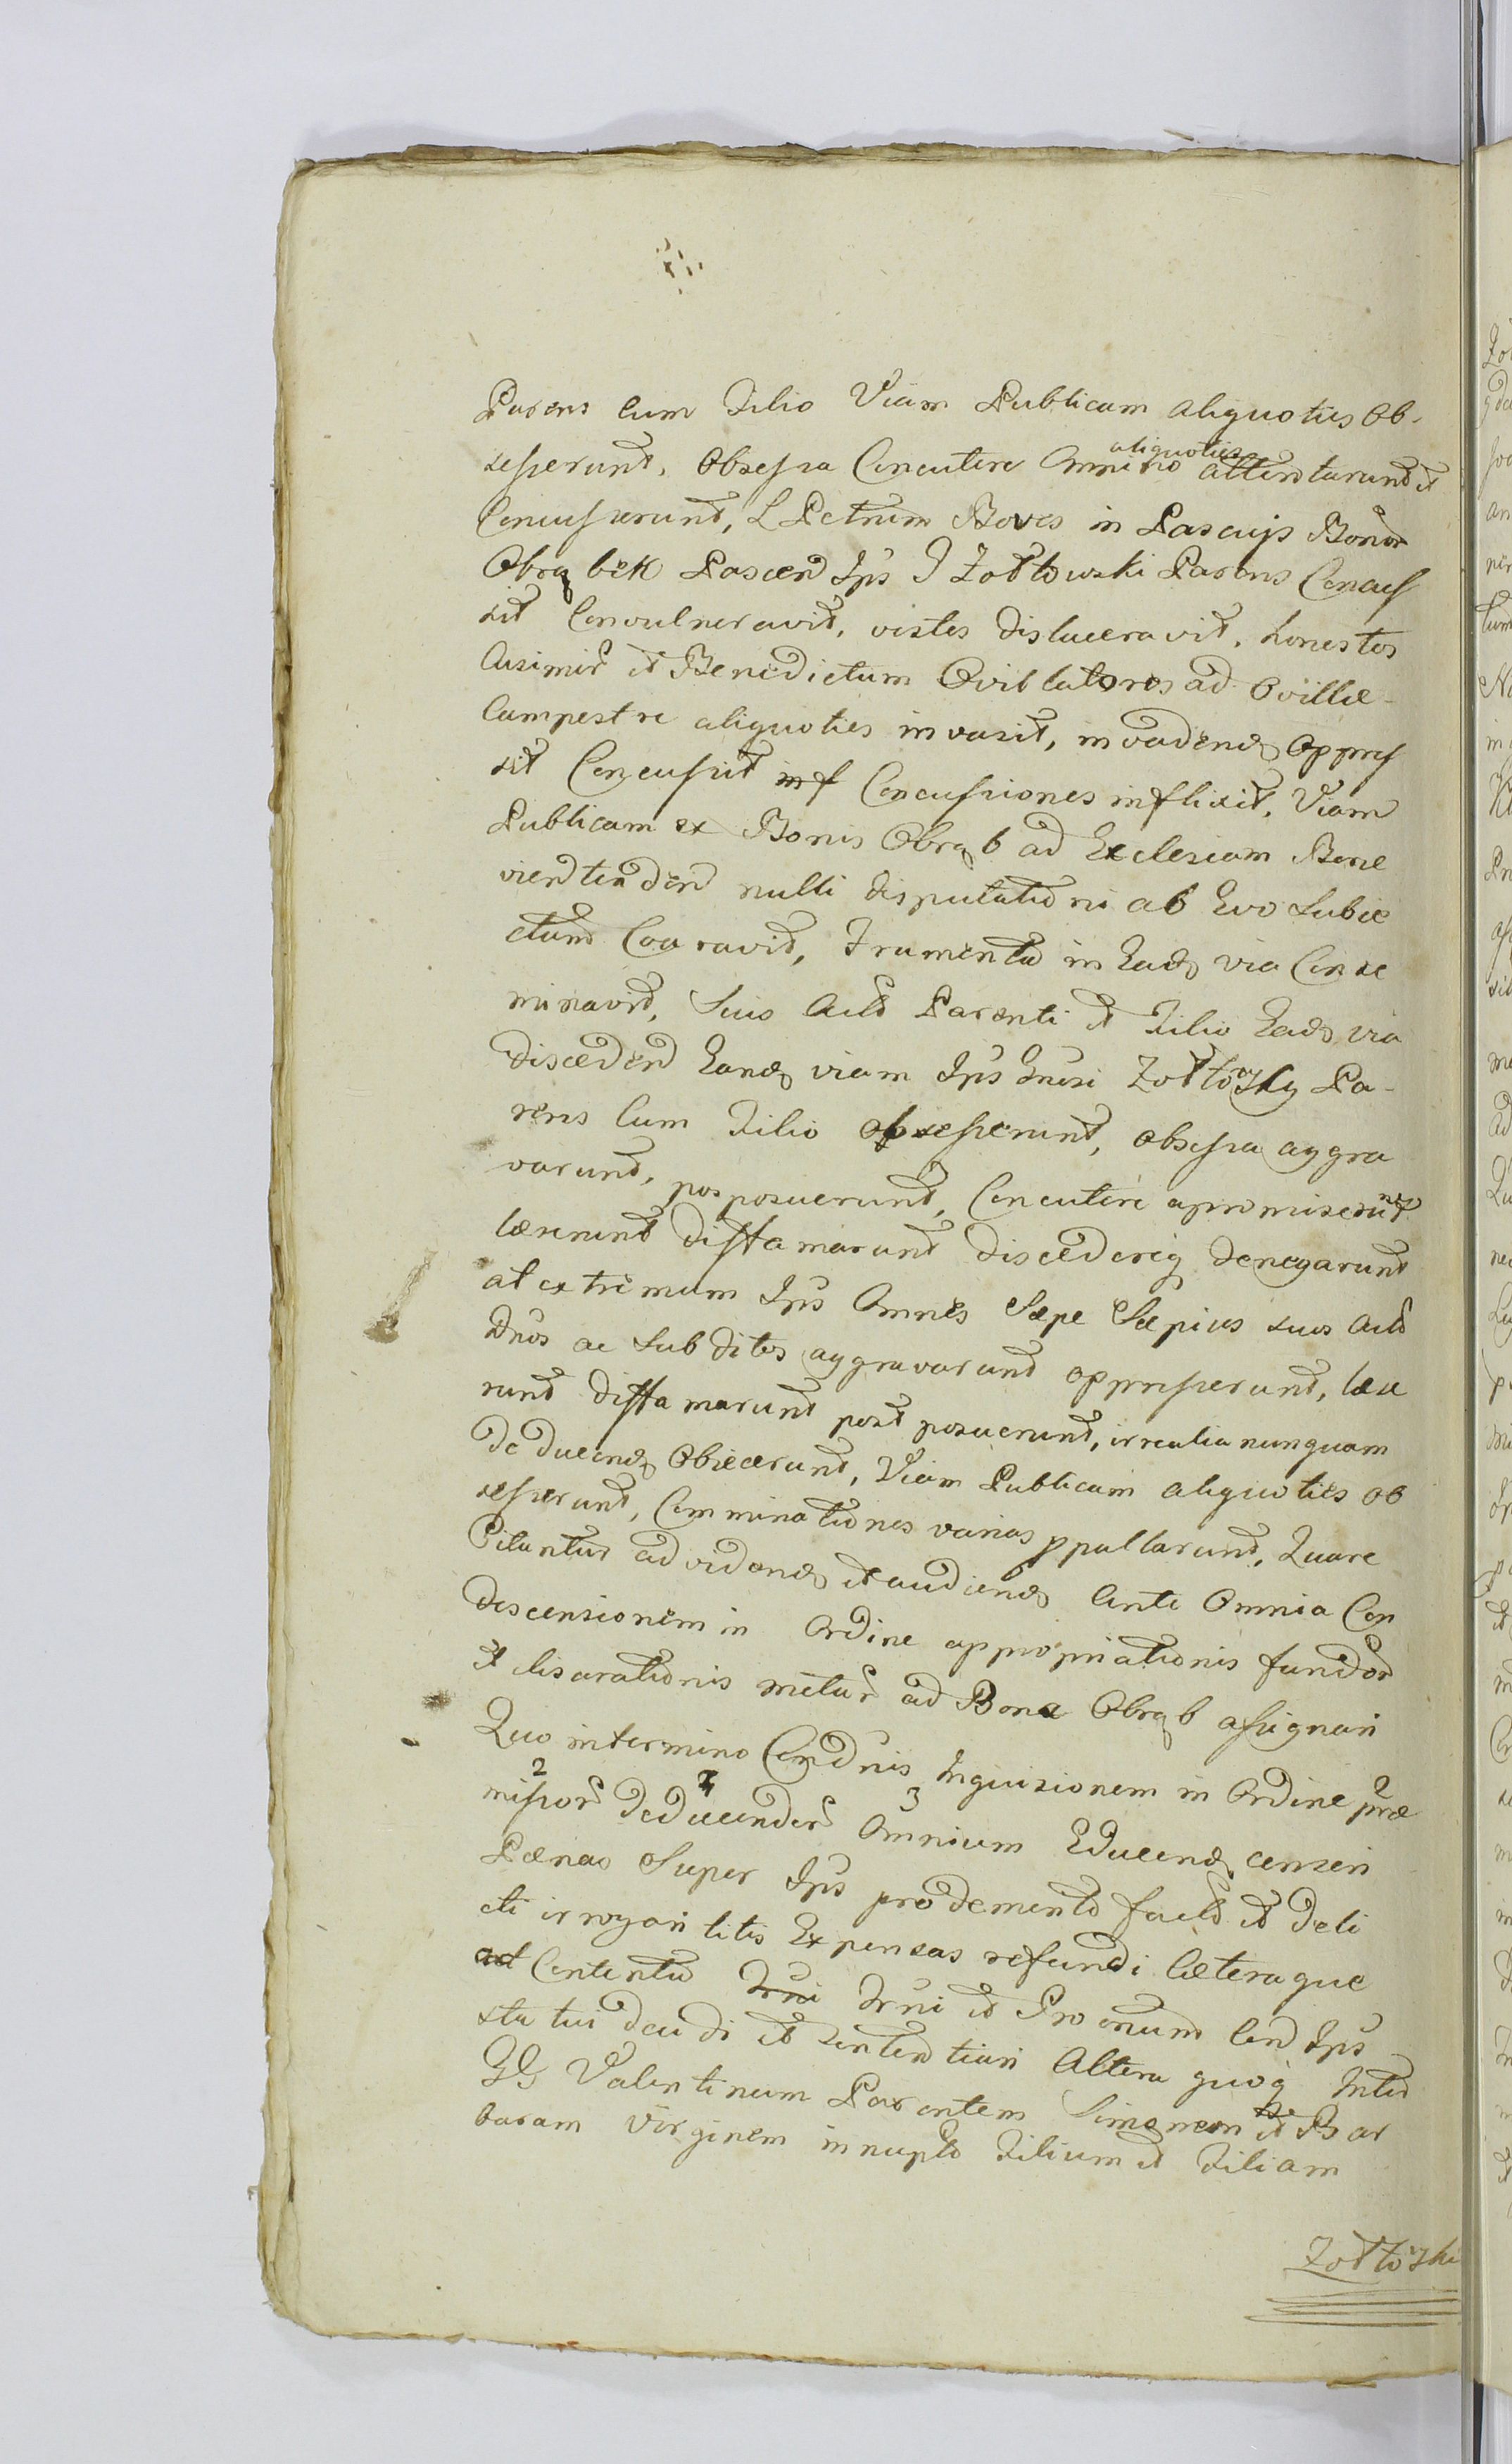 Parens cum Filio Viam Publicam aliquoties Ob-
sesserunt, Obsessa Concutere Omnino aliquoties attentarunt et
Concusserunt, L Petrum Boves in Pascuis Bonor
Obrąbek Pascen Ips J Zołtowski Parens Concus
sit Convulneravit, vestes dislaceravit, honestos
Casimir et Benedictum Ovil latores ad Oville
Campestre aliquoties invasit, invadend oppres
sit Concussit inf Concussiones inflixit, Viam
Publicam ex Bonis Obrąb ad Ecclesiam Bene
vien tenden nulli disputationi ab Evo Subie
ctam Coaravit, Frumenta in Ead via Conse
minavit, Suis Actor Parenti et Filio Ead via
discedend Eand viam Ips Insi Zołtowsky Pa-
rens Cum Filio obsesserunt, obsessa aggra
varunt, posposuerunt, Concutere apromiserunt
læserunt diffamarunt discedereq denegarunt
at extremum Ips Omnes Sæpe Sæpius suos Acto
Dnos ac Subditos aggravarunt oppresserunt, læse
runt diffamarunt post posuerunt, irrealia nunquam
deducend Obiecerunt, Viam Publicam aliquoties ob
sesserunt, Comminationes varias ppallarunt, Quare
Citantur ad vidend et audiend Ante Omnia Con
descensionem in Ordine appropriationis fundor
et lisarationis metar ad Bona Obrąb assignari
Quo in termino Condnis Inquisionem in Ordine præ
missor deducendor Omnium Educend censeri
Pænas Super Ips prodemento facto et deli
cti irrogari litis Expensas refundi Cæteraque
ad Contenta Irni Irni et Pro onum Con Ips
statui decidi et sententiari Altera quoq Inter
GG Valentinum Parentem Simonem et Bar
baram Virginem innupto Filium et Filiam
Zołtowski